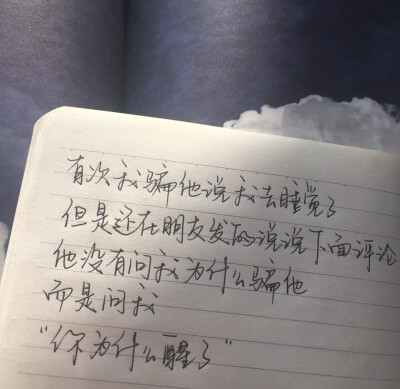 有次我骗他说我去睡觉了
但是还在朋友发的说说下面评论
他没有问我为什么骗他
而是问我
“你为什么醒了”